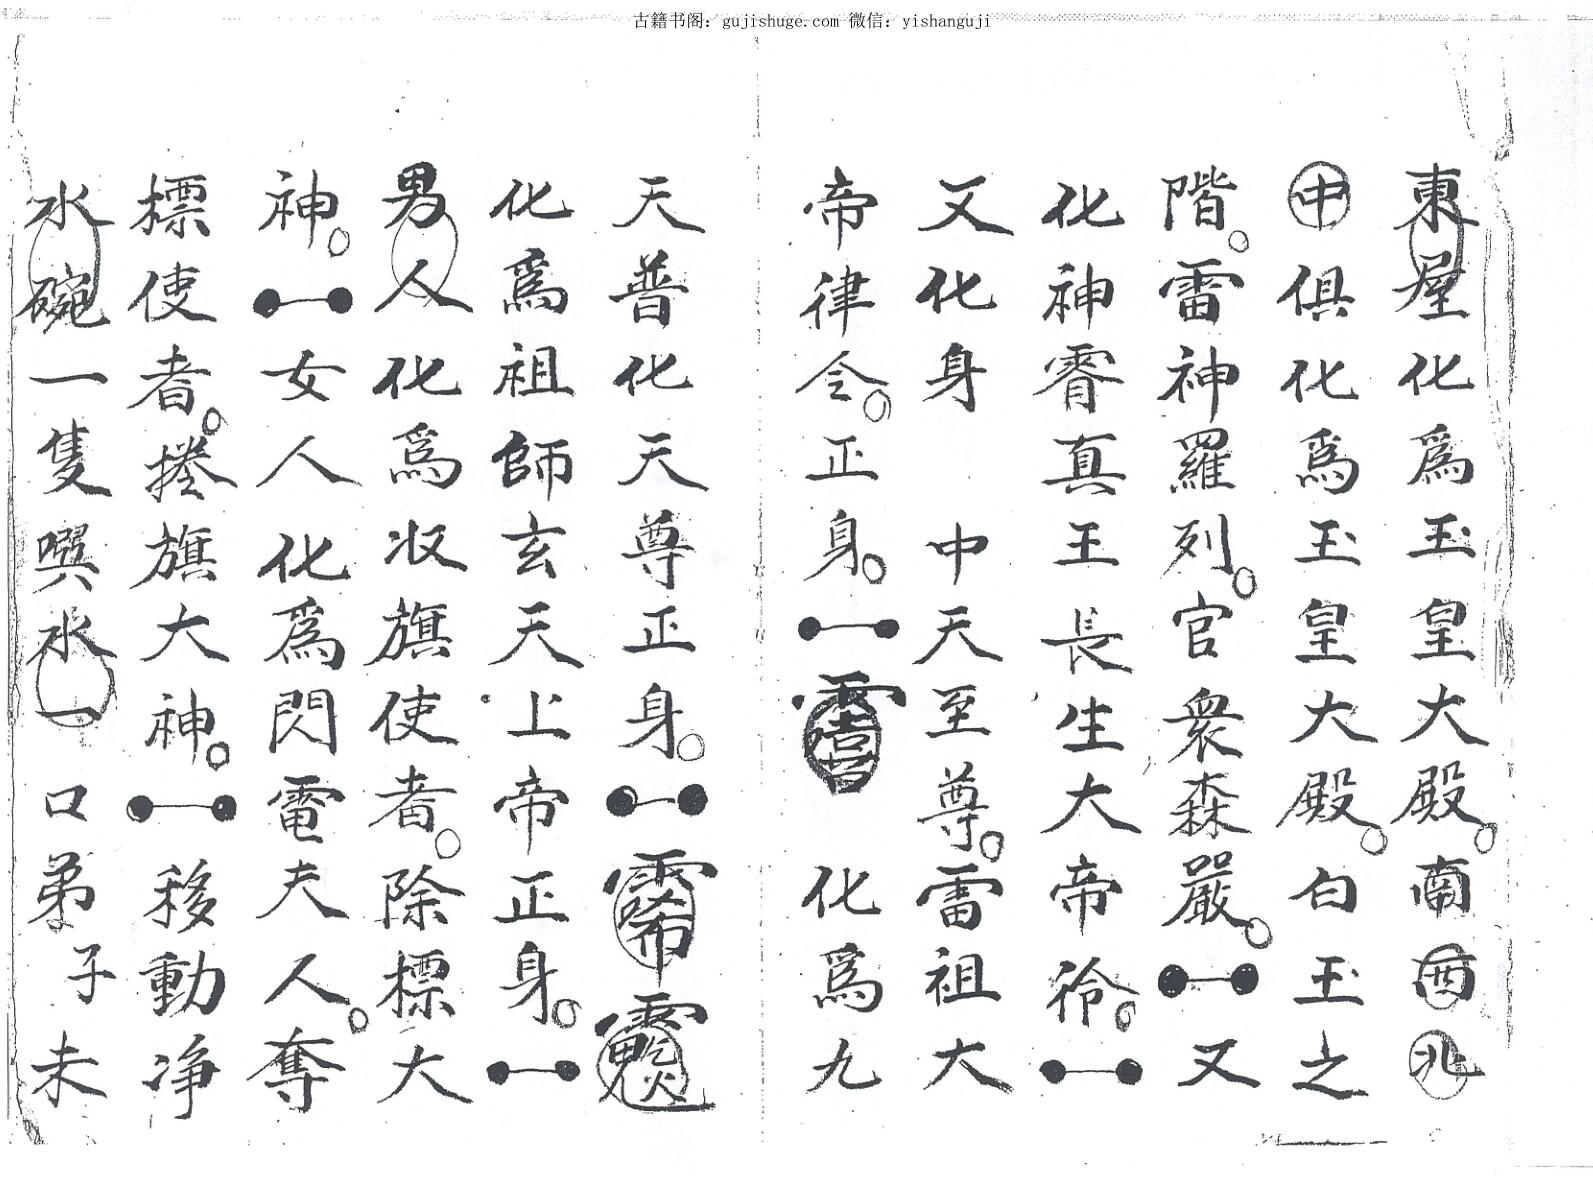 古籍书阁：gujishuge.com 微信：yishanguji
東屋化爲玉皇大殿。南西北
中俱化爲玉皇大殿。白玉之
階。雷神羅列。官衆森嚴。又
化神霄真王長生大帝
又化身 中天至尊。雷祖大
帝律令。正身。 化爲九
天普化天尊正身。
化爲祖師玄天上帝正身。
男人化爲收旗使者。除標大
神。女人化爲閃電夫人。奪
標使者。捲旗大神。移動净
水碗一隻噀水一口弟子未